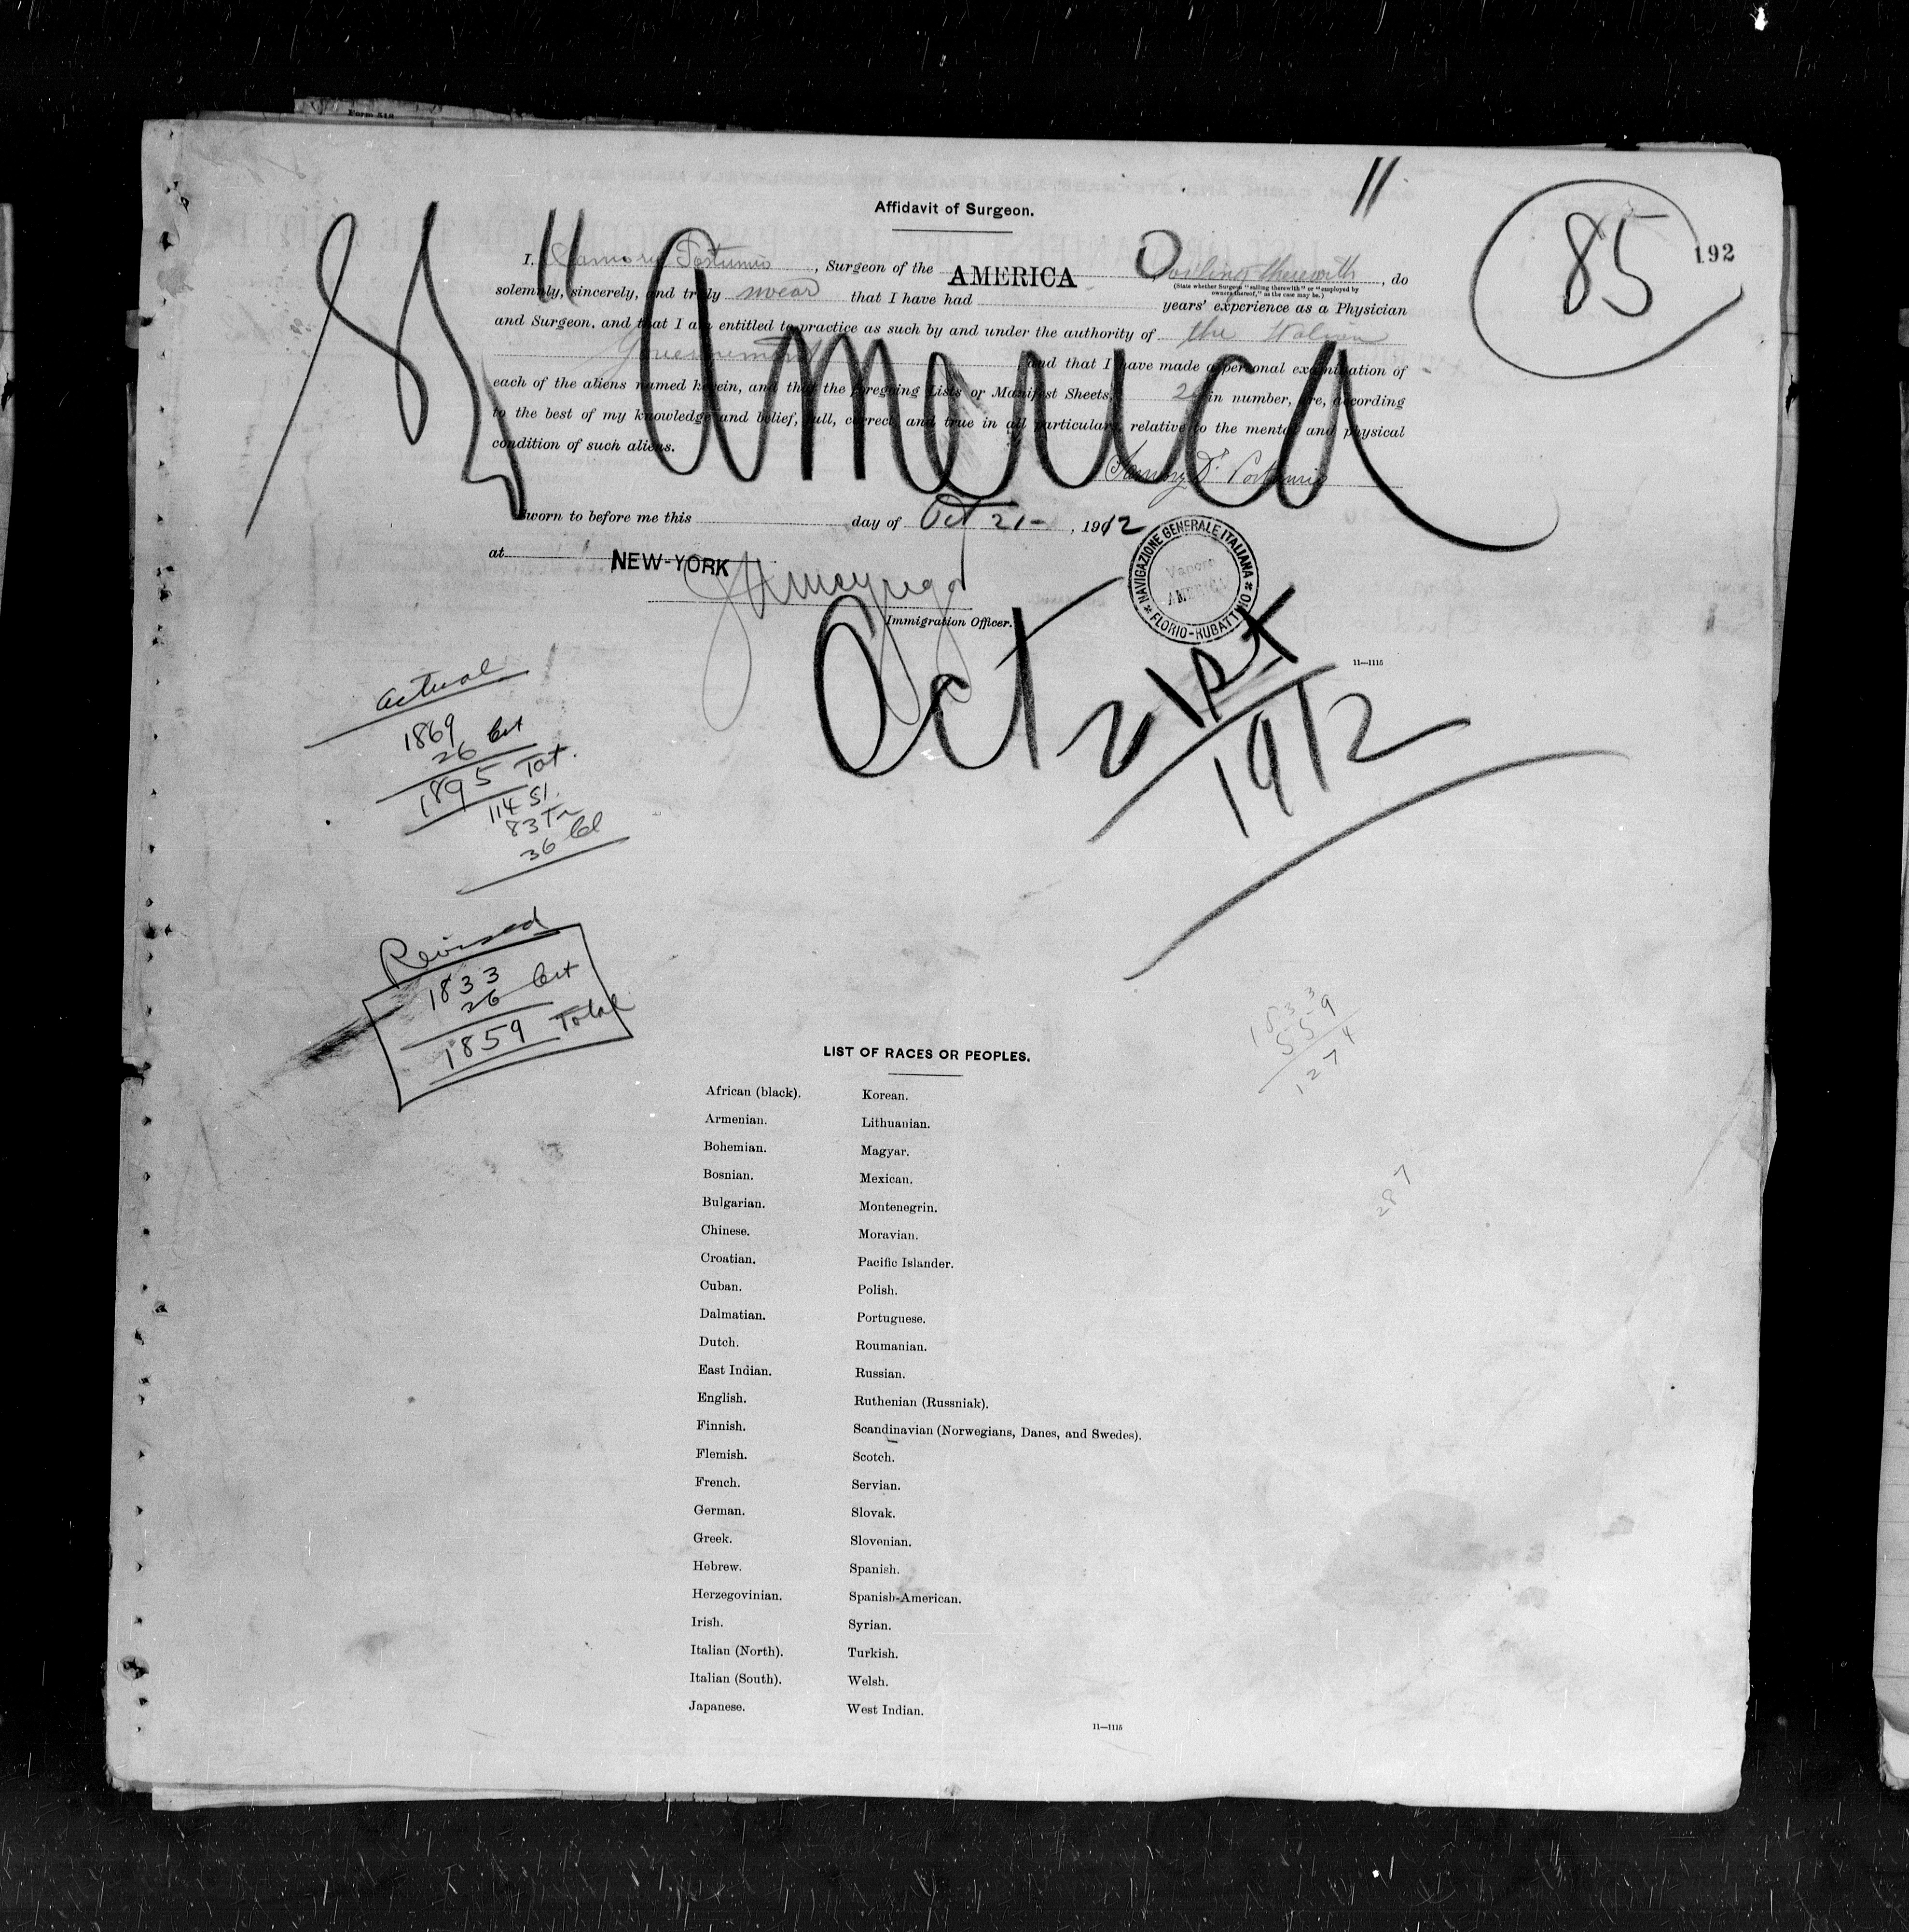 Form 518
Affidavit of Surgeon.
85
192
SS "America"
I, Postumio, Surgeon of the AMERICA sailing therewith, do
(State whether Surgeon "sailing therewith" or "employed by
owners thereof," as the case may be.)
solemnly, sincerely, and truly swear that I have had years' experience as a Physician
and Surgeon, and that I am entitled to practice as such by and under the authority of the Italian
Governement and that I have made a personal examination of
each of the aliens named herein, and that the foregoing Lists or Manifest Sheets, in number, are, according
to the best of my knowledge and belief, full, correct, and true in all particulars relative to the mental and physical
condition of such aliens.
Dr Postumio
Sworn to before me this day of Oct 21-, 1912
at NEW-YORK
Immigration Officer.
NAVIGAZIONE GENERALE ITALIANA
Vapore
AMERICA
FLORIO-RUBATTINO
Oct 21st
1912
11—1115
actual
1869
26
1895 Tot.
114 S1.
83 Tr
36
Revised
1833
26
1859 Total
1833
559
1274
287
LIST OF RACES OR PEOPLES.
African (black). Korean.
Armenian. Lithuanian.
Bohemian. Magyar.
Bosnian. Mexican.
Bulgarian. Montenegrin.
Chinese. Moravian.
Croatian. Pacific Islander.
Cuban. Polish.
Dalmatian. Portuguese.
Dutch. Roumanian.
East Indian. Russian.
English. Ruthenian (Russniak).
Finnish. Scandinavian (Norwegians, Danes, and Swedes).
Flemish. Scotch.
French. Servian.
German. Slovak.
Greek. Slovenian.
Hebrew. Spanish.
Herzegovinian. Spanish-American.
Irish. Syrian.
Italian (North). Turkish.
Italian (South). Welsh.
Japanese. West Indian.
11—1115